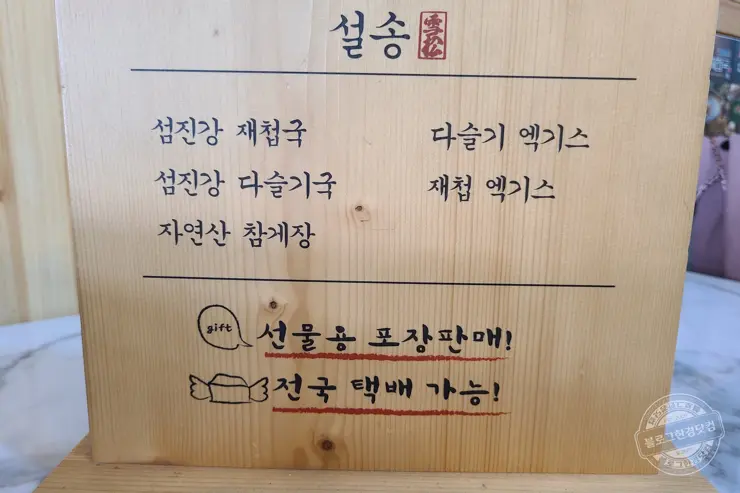 설송 雪松
섬진강 재첩국
섬진강 다슬기국
자연산 참게장
다슬기 엑기스
재첩 엑기스
gift 선물용 포장판매!
전국 택배 가능!
블로그한경닷컴